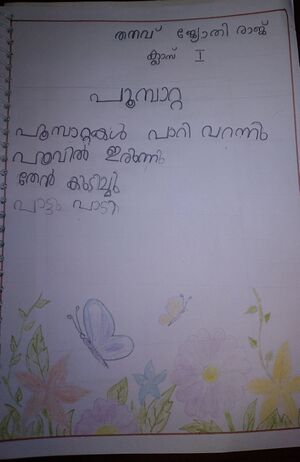 തനവ് ജ്യോതി രാജ്
ക്ലാസ് I
പൂമ്പാറ്റ
പൂമ്പാറ്റകൾ പാറി വറന്നു
പൂവിൽ ഇരുന്നു
തേൻ കുടിച്ചു
പാട്ടു പാടി